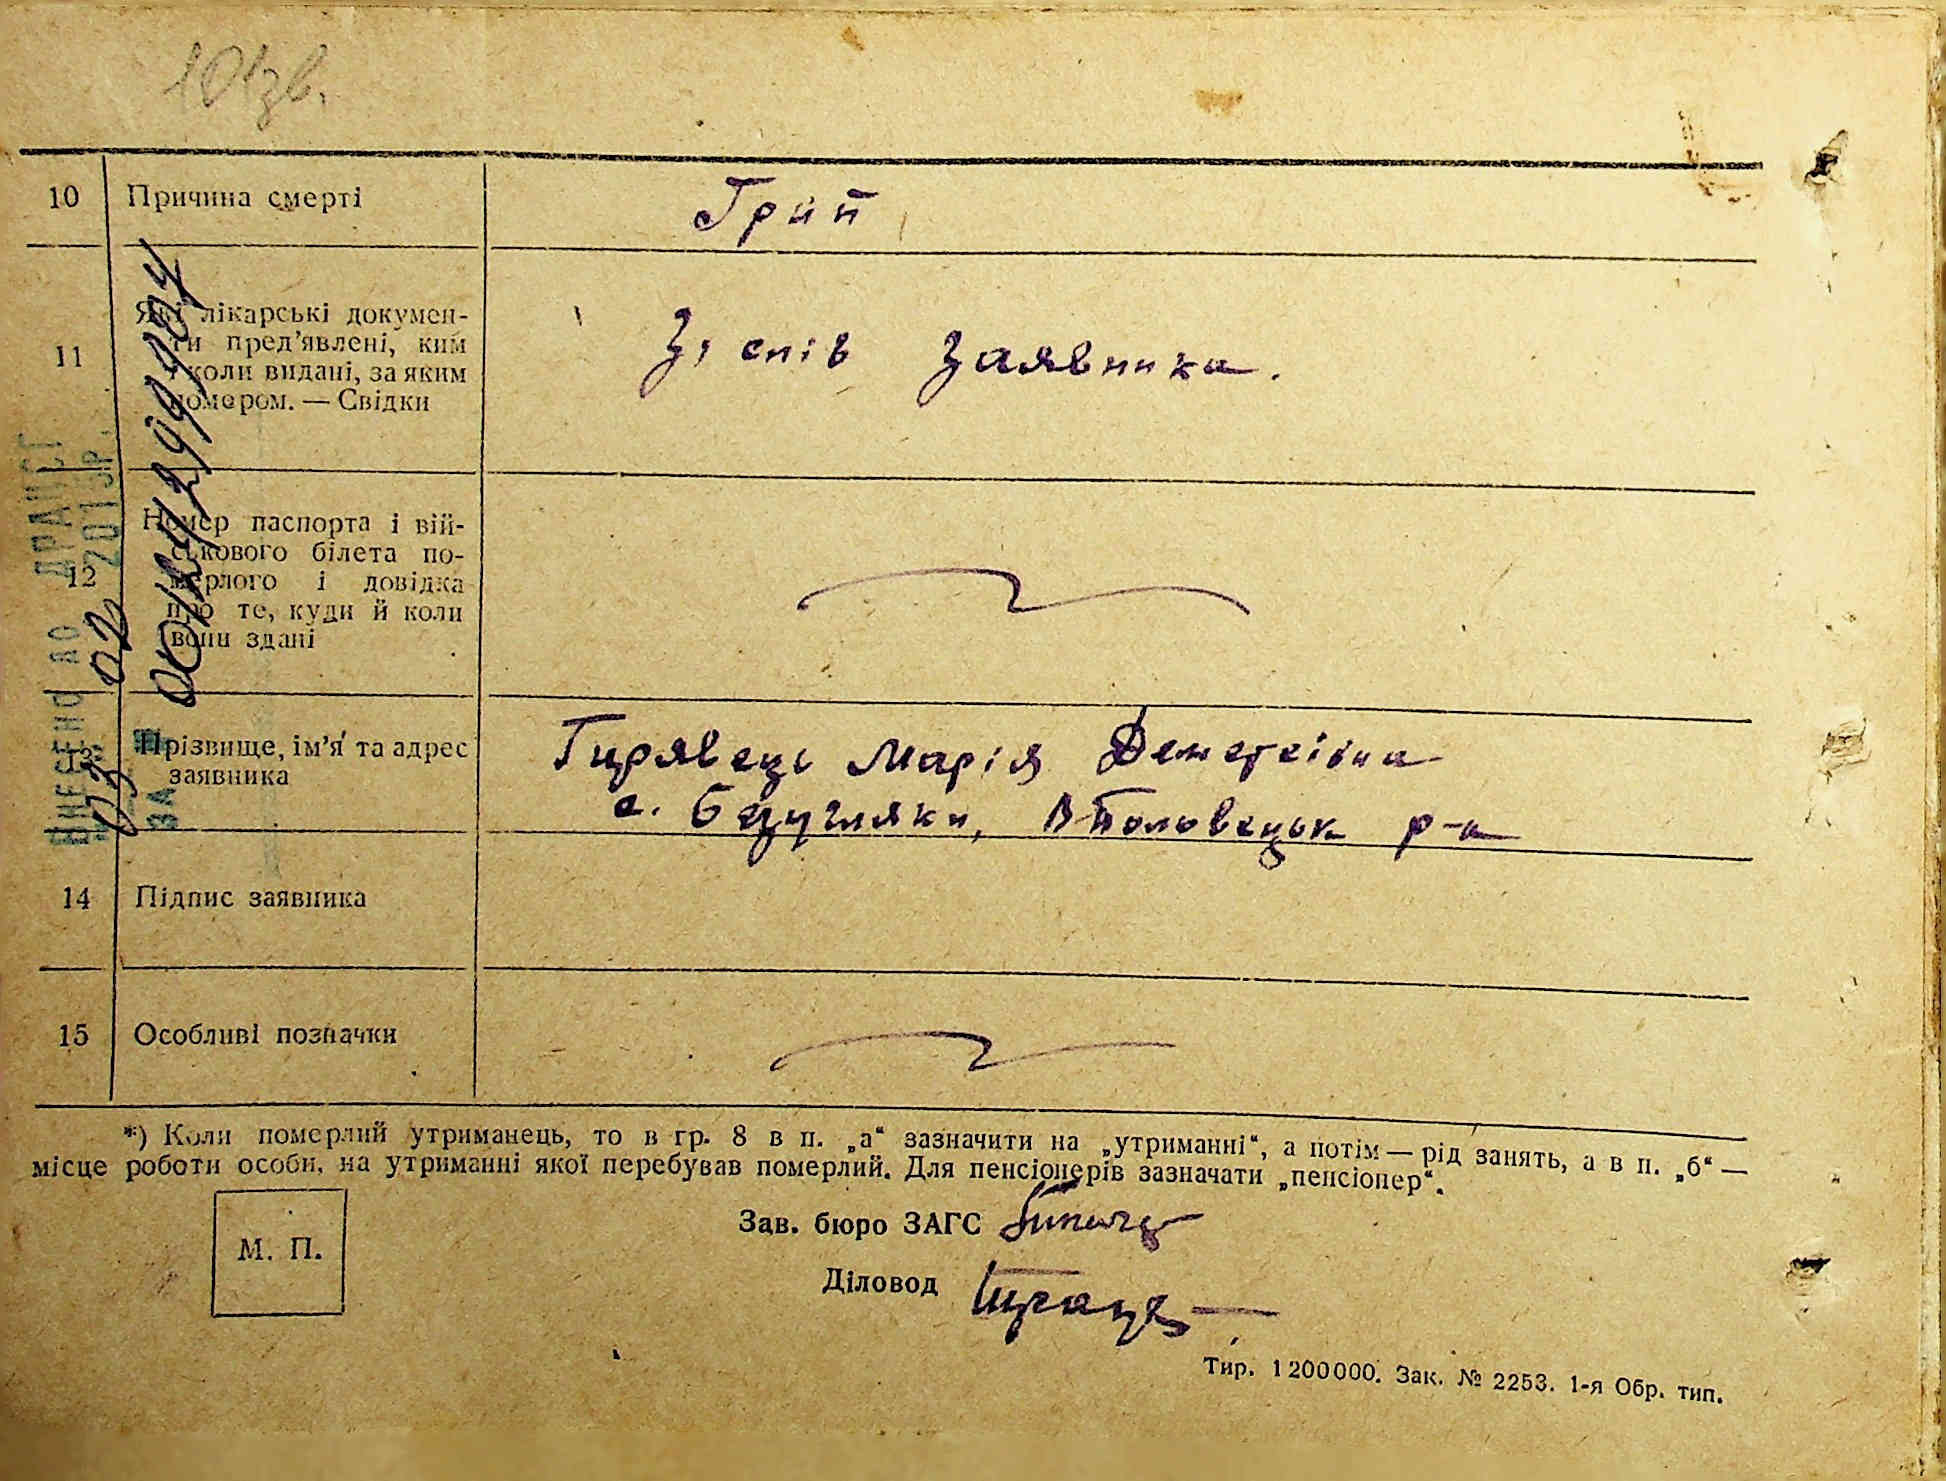 101зв.
10 Причина смерті Грип
11 Які лікарські докумен-
ти пред'явлені, ким
і коли видані, за яким
номером. — Свідки
Зі слів Заявника.
12 Номер паспорта і вій-
ськового білета по-
мерлого і довідка
про те, куди й коли
вони здані
13 Прізвище, ім'я та адрес
заявника
Гирявець Марія
с. Безугляки, р-н
14 Підпис заявника
15 Особливі позначки
*) Коли померлий утриманець, то в гр. 8 в п. „а“ зазначити на „утриманні“, а потім — рід занять, а в п. „б“ —
місце роботи особи, на утриманні якої перебував померлий. Для пенсіонерів зазначати „пенсіонер“.
М. П.
Зав. бюро ЗАГС
Діловод
Тир. 1200000. Зак. № 2253. 1-я Обр. тип.
ВНЕСЕНО ДО ДРАЦСГ
03 02 2015р.
ЗА №